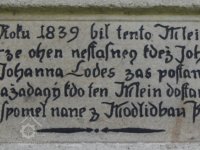 Roku 1839 bil tento Mlein
ze ohen nesstasney kdez Joh
Johanna Lodes zas postan
azadagy kdo ten Mlein dostan
spomel nane z Modlidbau P